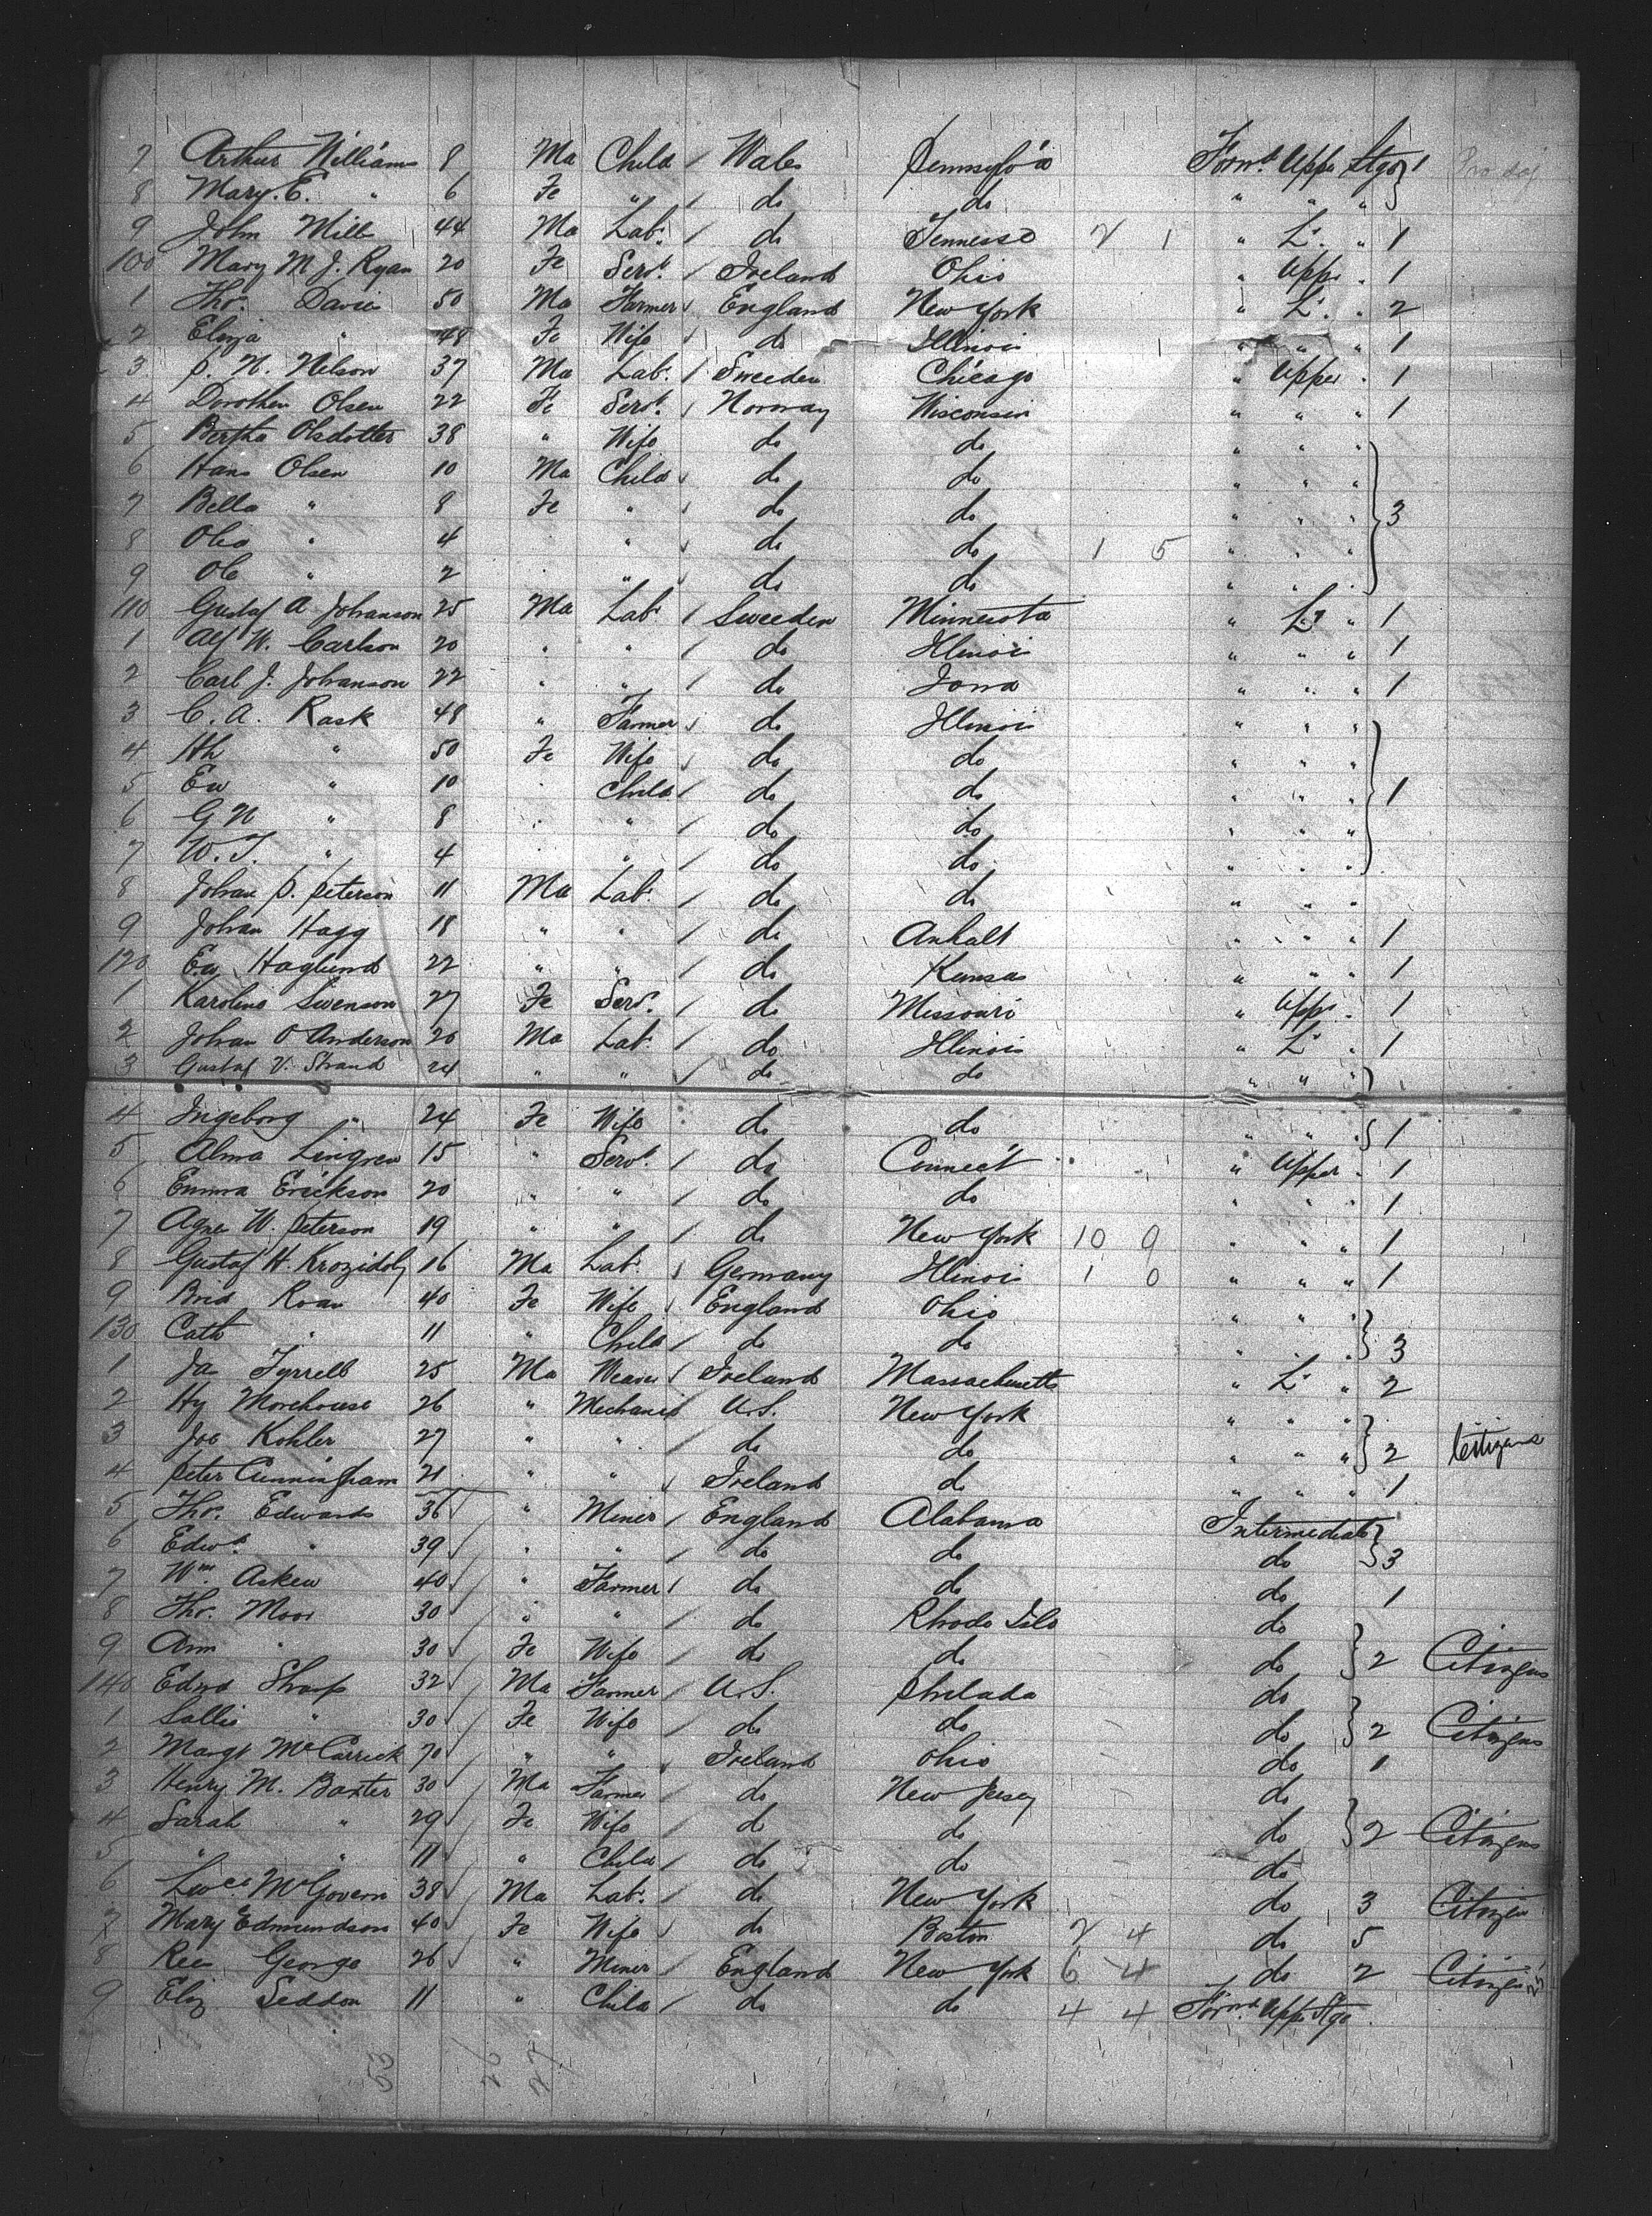 7 Arthur Williams 8 Ma Child / Wales Pennsylv'a Forw'd Upp'r Stge 1
8 Mary. E. " 6 Fe " / do do " " "
9 John Mill 44 Ma Lab'r / do Tennesse 2 1 " L'r " 1
100 Mary M J. Ryan 20 Fe Serv't / Ireland Ohio " Upp'r " 1
1 Tho's Davie 50 Ma Farmer / England New York " L'r " 2
2 Eliza " 48 Fe Wife / do Illinois " " " 1
3 P. N. Nelson 37 Ma Lab'r / Sweeden Chicago " Upper " 1
4 Dorothea Olsen 22 Fe Serv't / Norway Wisconsin " " " 1
5 Bertha Olsdotter 38 " Wife do do " " "
6 Hans Olsen 10 Ma Child / do do " " "
7 Bella " 8 Fe " / do do " " " 3
8 " 4 " / do do 1 5 " " "
9 Ole " 2 " / do do " " "
110 Gustaf A Johanson 25 Ma Lab'r / Sweeden Minnesota " L'r " 1
1 Alf W. Carlson 20 " " / do Illinois " " " 1
2 Carl J. Johanson 22 " " / do Iowa " " " 1
3 C. A. Rask 48 " Farmer / do Illinois " " "
4 " 50 Fe Wife / do do " " "
5 " 10 " Child / do do " " " 1
6 G N " 8 " " / do do " " "
7 W. T. " 4 " " / do do " " "
8 Johan P. Peterson 11 Ma Lab'r / do do " " "
9 Johan Hagg 18 " " / do Anhalt " " " 1
120 Haglund 22 " " / do Kansas " " " 1
1 Karolina Swenson 27 Fe Serv't / do Missouri " Upp'r " 1
2 Johan O Anderson 20 Ma Lab'r / do Illinois " L'r " 1
3 Gustaf V. Strand 24 " " / do do " " "
4 Ingeborg " 24 Fe Wife do do " " " 1
5 Alma Lingren 15 " Serv't / do Connect " Upper " 1
6 Emma Erickson 20 " " / do do " " " 1
7 W. Peterson 19 " " / do New York 10 9 " " " 1
8 Gustaf H. 16 Ma Lab'r / Germany Illinois 1 0 " " " 1
9 Brid Roan 40 Fe Wife / England Ohio " " "
130 Cath " 11 " Child / do do " " " 3
1 Ja's Tyrrell 25 Ma Weaver / Ireland Massachusetts " L'r " 2
2 Hy Morehouse 26 " Mechanic / U.S. New York " " "
3 Joe Kohler 27 " " / do do " " " 2 Citizens
4 Peter Cunningham 21 " " / Ireland do " " " 1
5 Tho's Edwards 36 / " Miner / England Alabama Intermediate
6 Edw'd " 39 / " " / do do do 3
7 Wm Askew 40 / " Farmer / do do do 1
8 Tho's Moor 30 / " " / do Rhode Isld do
9 Ann " 30 / Fe Wife / do do do 2 Citizens
140 Edwd Sharp 32 / Ma Farmer / U.S. Philada do
1 Sallie " 30 / Fe Wife / do do do 2 Citizens
2 Margt McCarrick 70 / " " Ireland Ohio do 1
3 Henry M. Baxter 30 / Ma Farmer do New Jersey do
4 Sarah " 29 / Fe Wife / do do do 2 Citizens
5 " " 11 / " Child / do do do
6 McGovern 38 / Ma Lab'r / do New York do 3 Citizen
7 Mary Edmundson 40 / Fe Wife / do Boston 2 4 do 5
8 Rees George 26 / " Miner / England New York 6 4 do 2 Citizen
9 Eliz Seddon 11 " Child / do do 4 4 Forwd Upp'r Stge